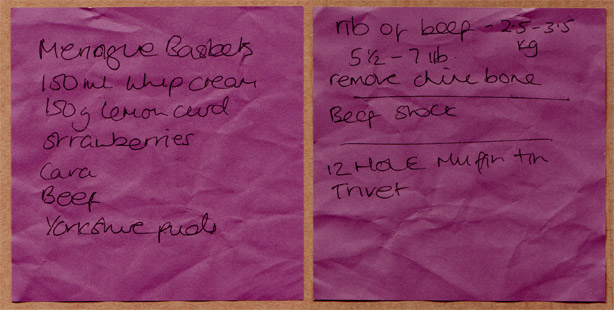 Meringue Baskets
150ml whip cream
150g lemon curd
strawberries
Cava
Beef
Yorkshire puds
rib of beef - 2.5-3.5
kg
5 1/2 - 7 lb.
remove chine bone
Beef stock
12 Hole Muffin tin
Trivet